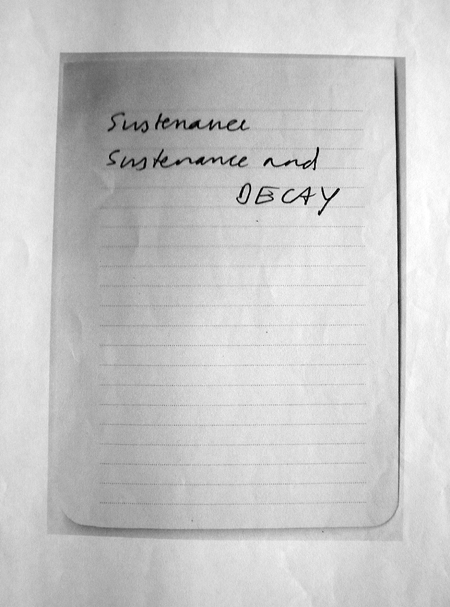 Sustenance
Sustenance and
DECAY